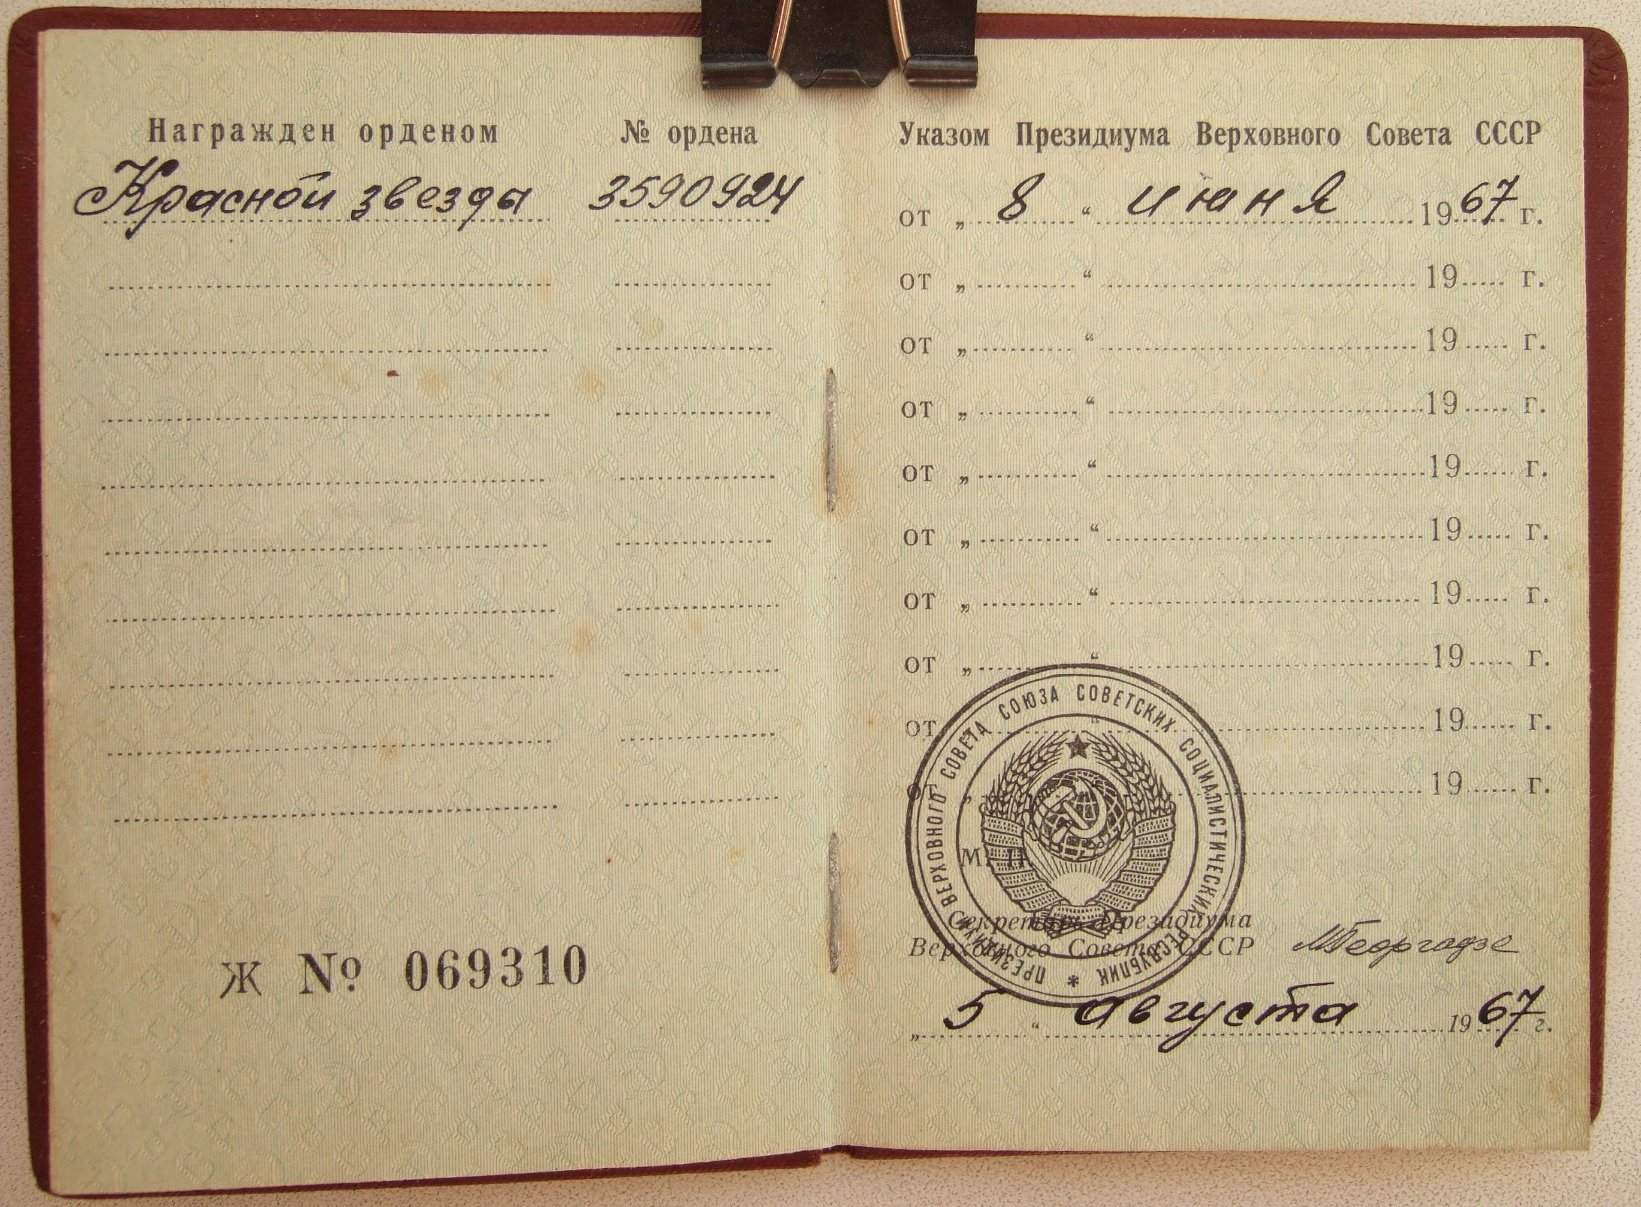 Награжден орденом № ордена
Красной звезды 3590924
Ж № 069310
Указом Президиума Верховного Совета СССР
от „ 8 “ июня 1967 г.
от „ “ 19 г.
от „ “ 19 г.
от „ “ 19 г.
от „ “ 19 г.
от „ “ 19 г.
от „ “ 19 г.
от „ “ 19 г.
от „ “ 19 г.
от „ “ 19 г.
М. П.
ПРЕЗИДИУМ ВЕРХОВНОГО СОВЕТА СОЮЗА СОВЕТСКИХ СОЦИАЛИСТИЧЕСКИХ РЕСПУБЛИК *
Секретарь Президиума
Верховного Совета СССР МГеоргадзе
„ 5 “ августа 1967 г.